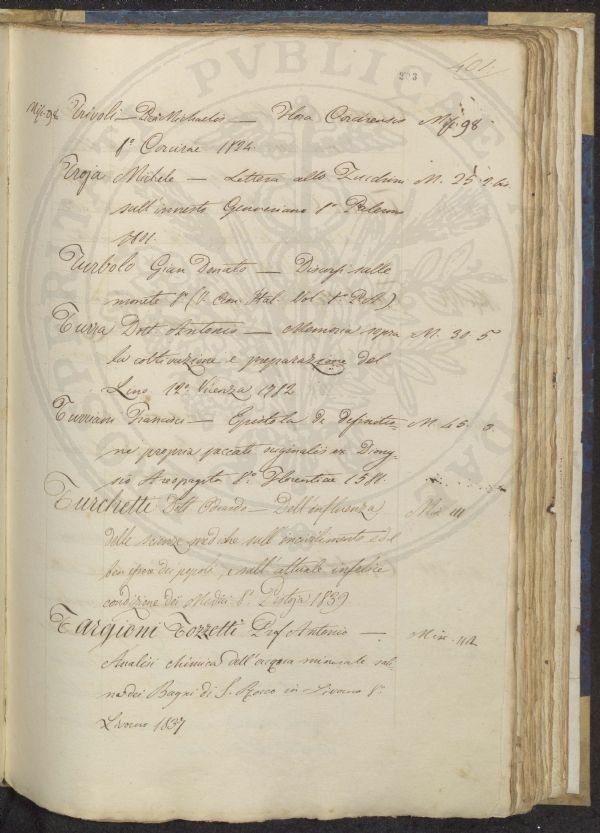 101.
203
Mis. 98 Trivoli — Michaelis — Flora Corcirensis Mis. 98
8° Corcirae 1824.
Troja Michele — Lettera allo Zucchini M. 25. 2
sull'innesto 8° Palermo
Turbolo Gian Donato — Discorsi sulle
monete 8° (V. Econ. Ital. Vol. 1° P.A.)
Turra Dott. Antonio — Memoria sopra M. 30. 5
la coltivazione e preparazione del
Lino 12° Vicenza 1782
Turriani Francisci — Epistola de definitio- M. 45. 3
ne propria peccati originalis ex Diony-
sio Areopagita 8° Florentiae 1581.
Turchetti Dott. Odoardo — Dell'influenza Mis. 111
delle scienze mediche sull'incivilimento ed il
ben essere dei popoli, e sull'attuale infelice
condizione dei Medici 8° Pistoja 1839
Targioni Tozzetti Prof Antonio — Mis. 112
Analisi chimica dell'acqua minerale sali-
na dei Bagni di S. Rocco in Livorno 8°
Livorno 1837